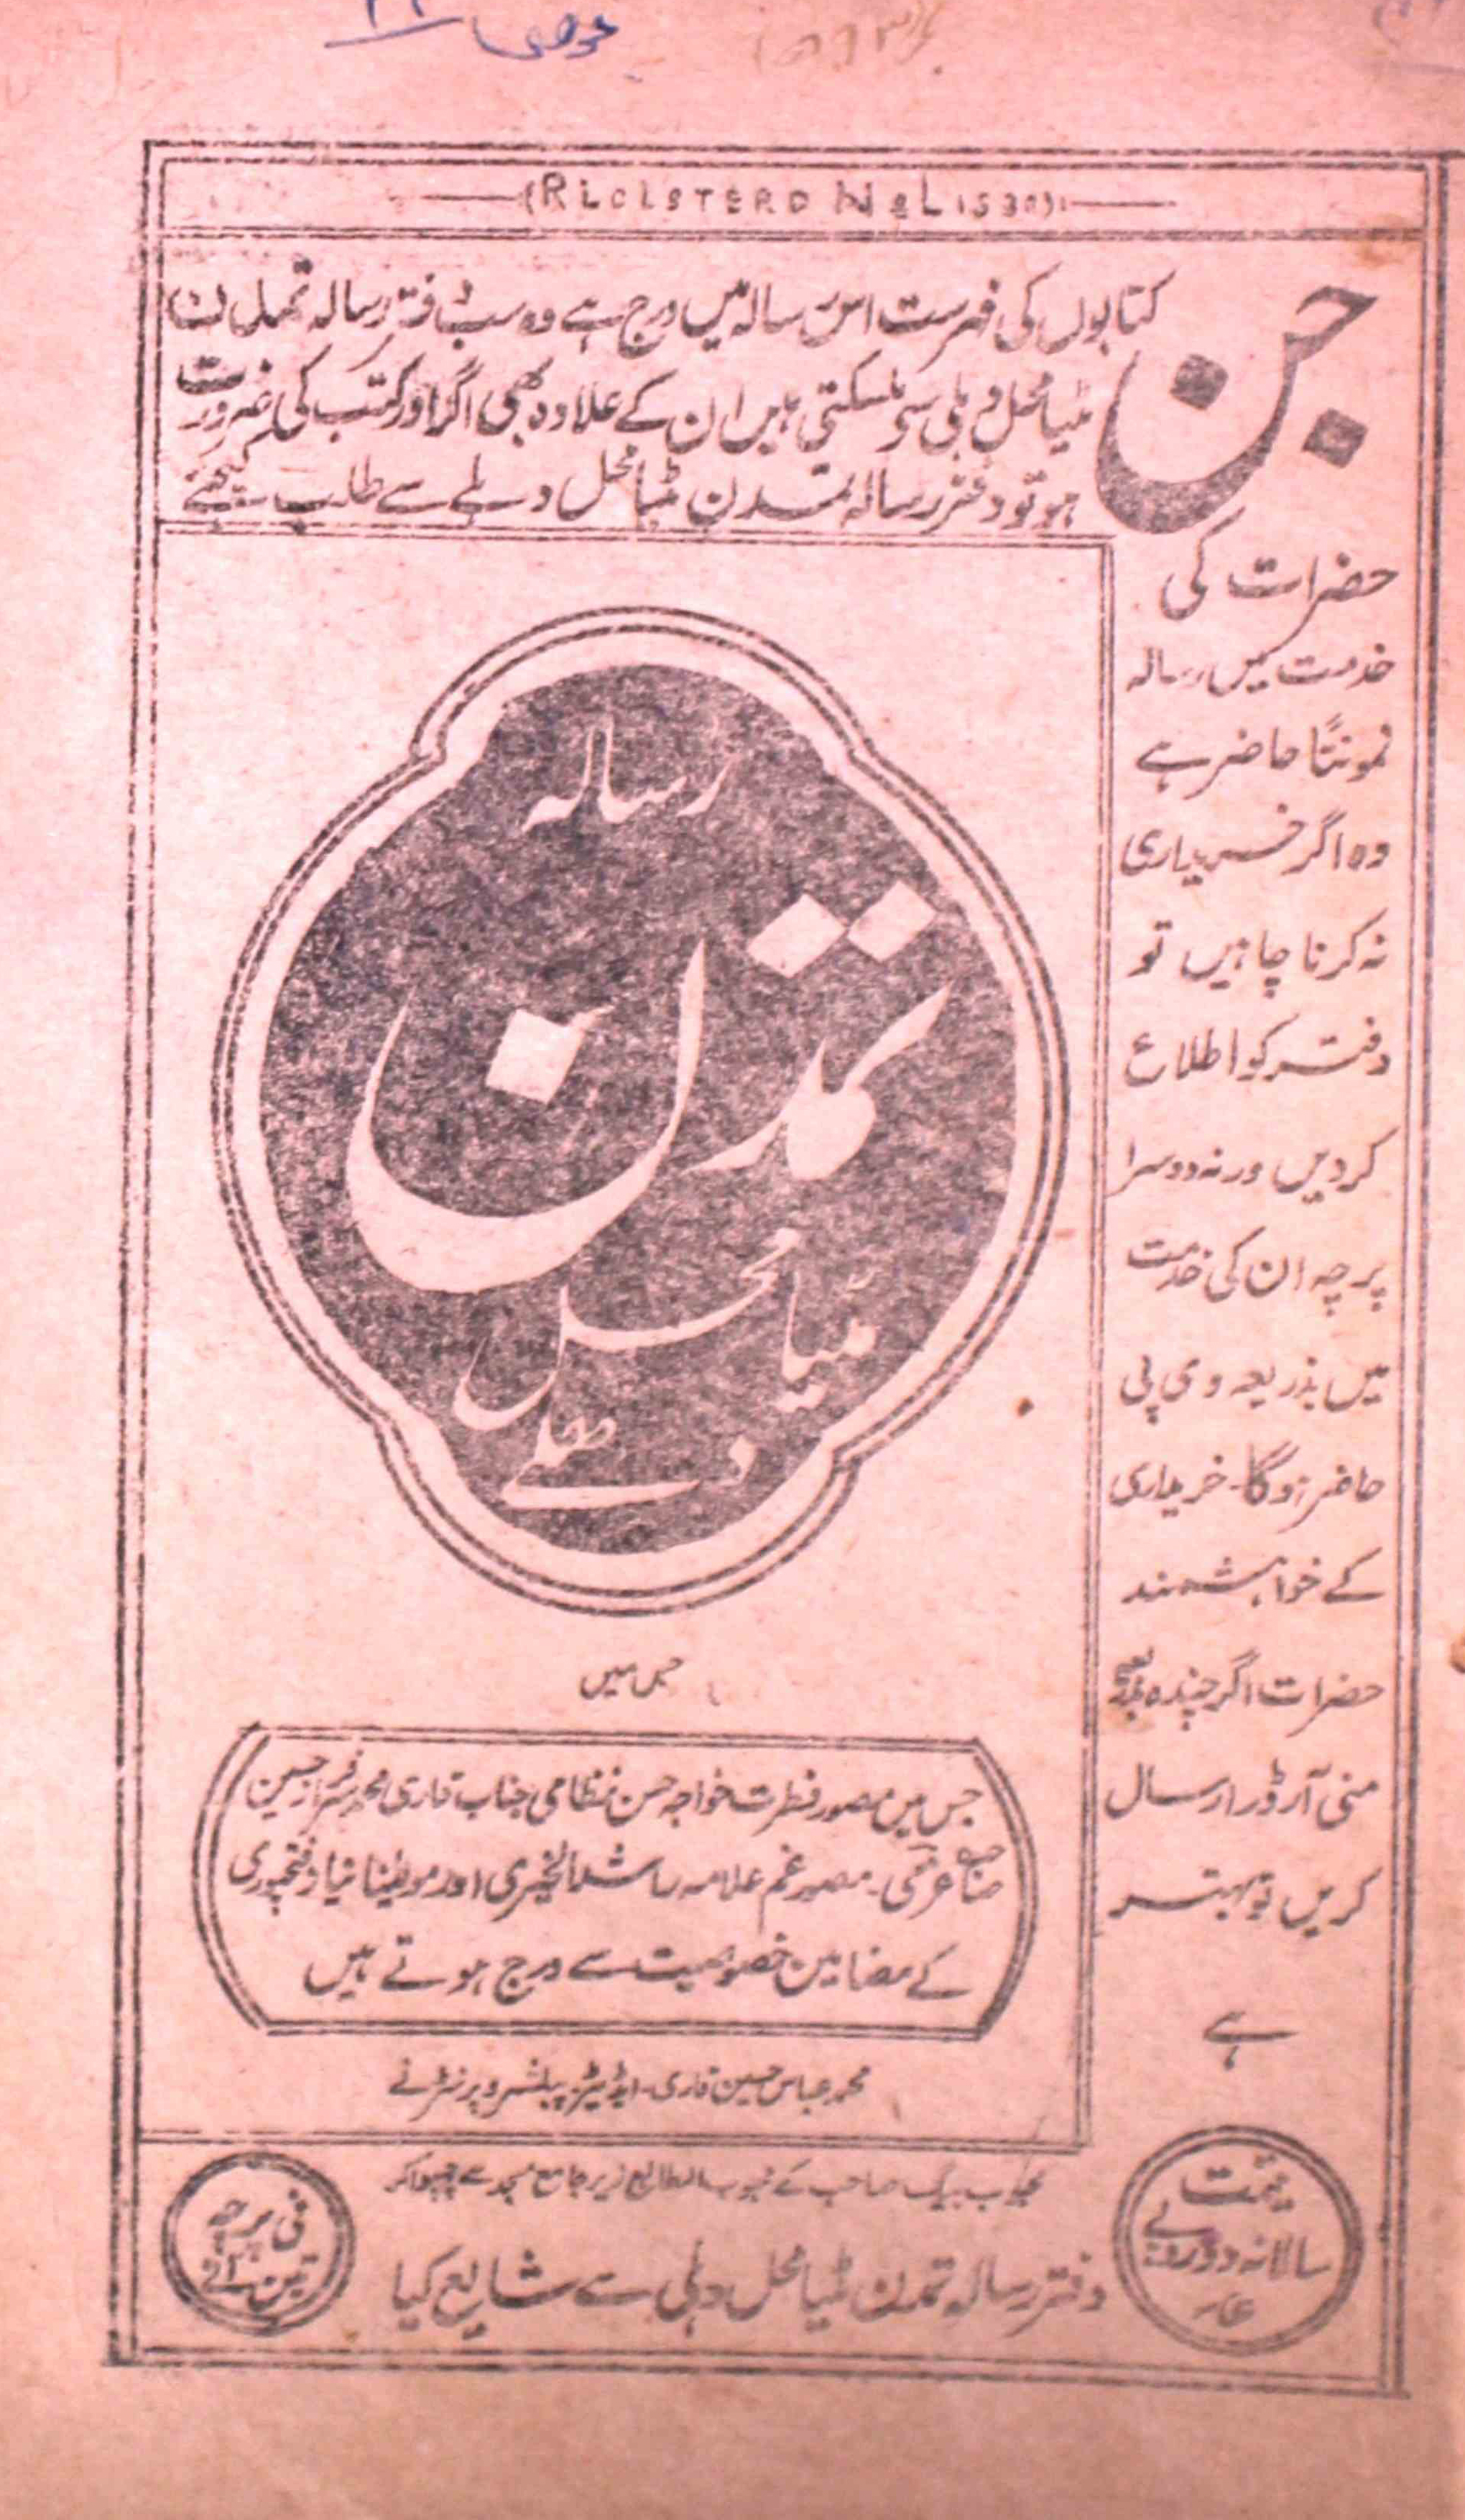 (RLGLSTERD No L 1530)
جن
کتابوں کی فہرست اس رسالہ میں درج ہے وہ سب دفتر رسالہ تمدن
مٹیا محل دہلی سے مل سکتی ہیں ان کے علاوہ بھی اگر اور کتب کی ضرورت
ہو تو دفتر رسالہ تمدن مٹیا محل دہلی سے طلب کیجئے
حضرات کی
خدمت میں رسالہ
نمونتاً حاضر ہے
وہ اگر خریداری
نہ کرنا چاہیں تو
دفتر کو اطلاع
کردیں ورنہ دوسرا
پرچہ ان کی خدمت
میں بذریعہ وی پی
حاضر ہوگا۔ خریداری
کے خواہشمند
حضرات اگر چندہ بذریعہ
منی آرڈر ارسال
کریں تو بہتر
ہے
رسالہ
تمدن
مٹیا محل
دہلی
جس میں
جس میں مصور فطرت خواجہ حسن نظامی جناب قاری محمد سرفراز حسین
صاحب عزمی۔ مصور غم علامہ راشد الخیری اور مولینا نیاز فتحپوری
کے مضامین خصوصیت سے درج ہوتے ہیں
محمد عباس حسین قاری۔ ایڈیٹر پبلشر و پرنٹر نے
محبوب بیگ صاحب کے محبوب المطابع زیر جامع مسجد سے چھپوا کر
دفتر رسالہ تمدن مٹیا محل دہلی سے شایع کیا
قیمت
سالانہ دو روپے
فی پرچہ
تین آنے